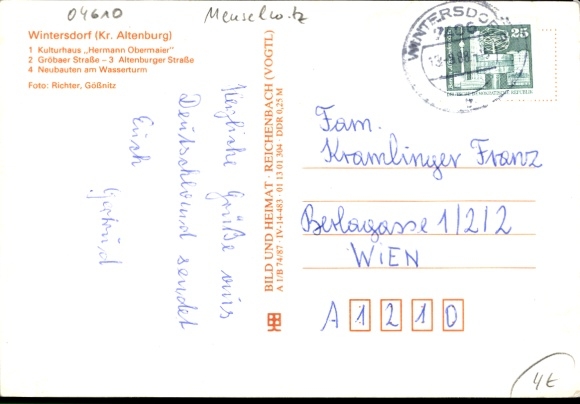 04610 Meuselwitz
Wintersdorf (Kr. Altenburg)
1 Kulturhaus „Hermann Obermaier"
2 Gröbaer Straße – 3 Altenburger Straße
4 Neubauten am Wasserturm
Foto: Richter, Gößnitz
Herzliche Grüße aus
Deutschland sendet
Euch
Gertrud
BILD UND HEIMAT · REICHENBACH (VOGTL)
A 1/B 74/87 · IV-14-483 · 01 13 01 304 · DDR 0,25 M
WINTERSDORF
7406
25
Fam.
Kramlinger Franz
Berlagasse 1/2/2
WIEN
A 1210
4€